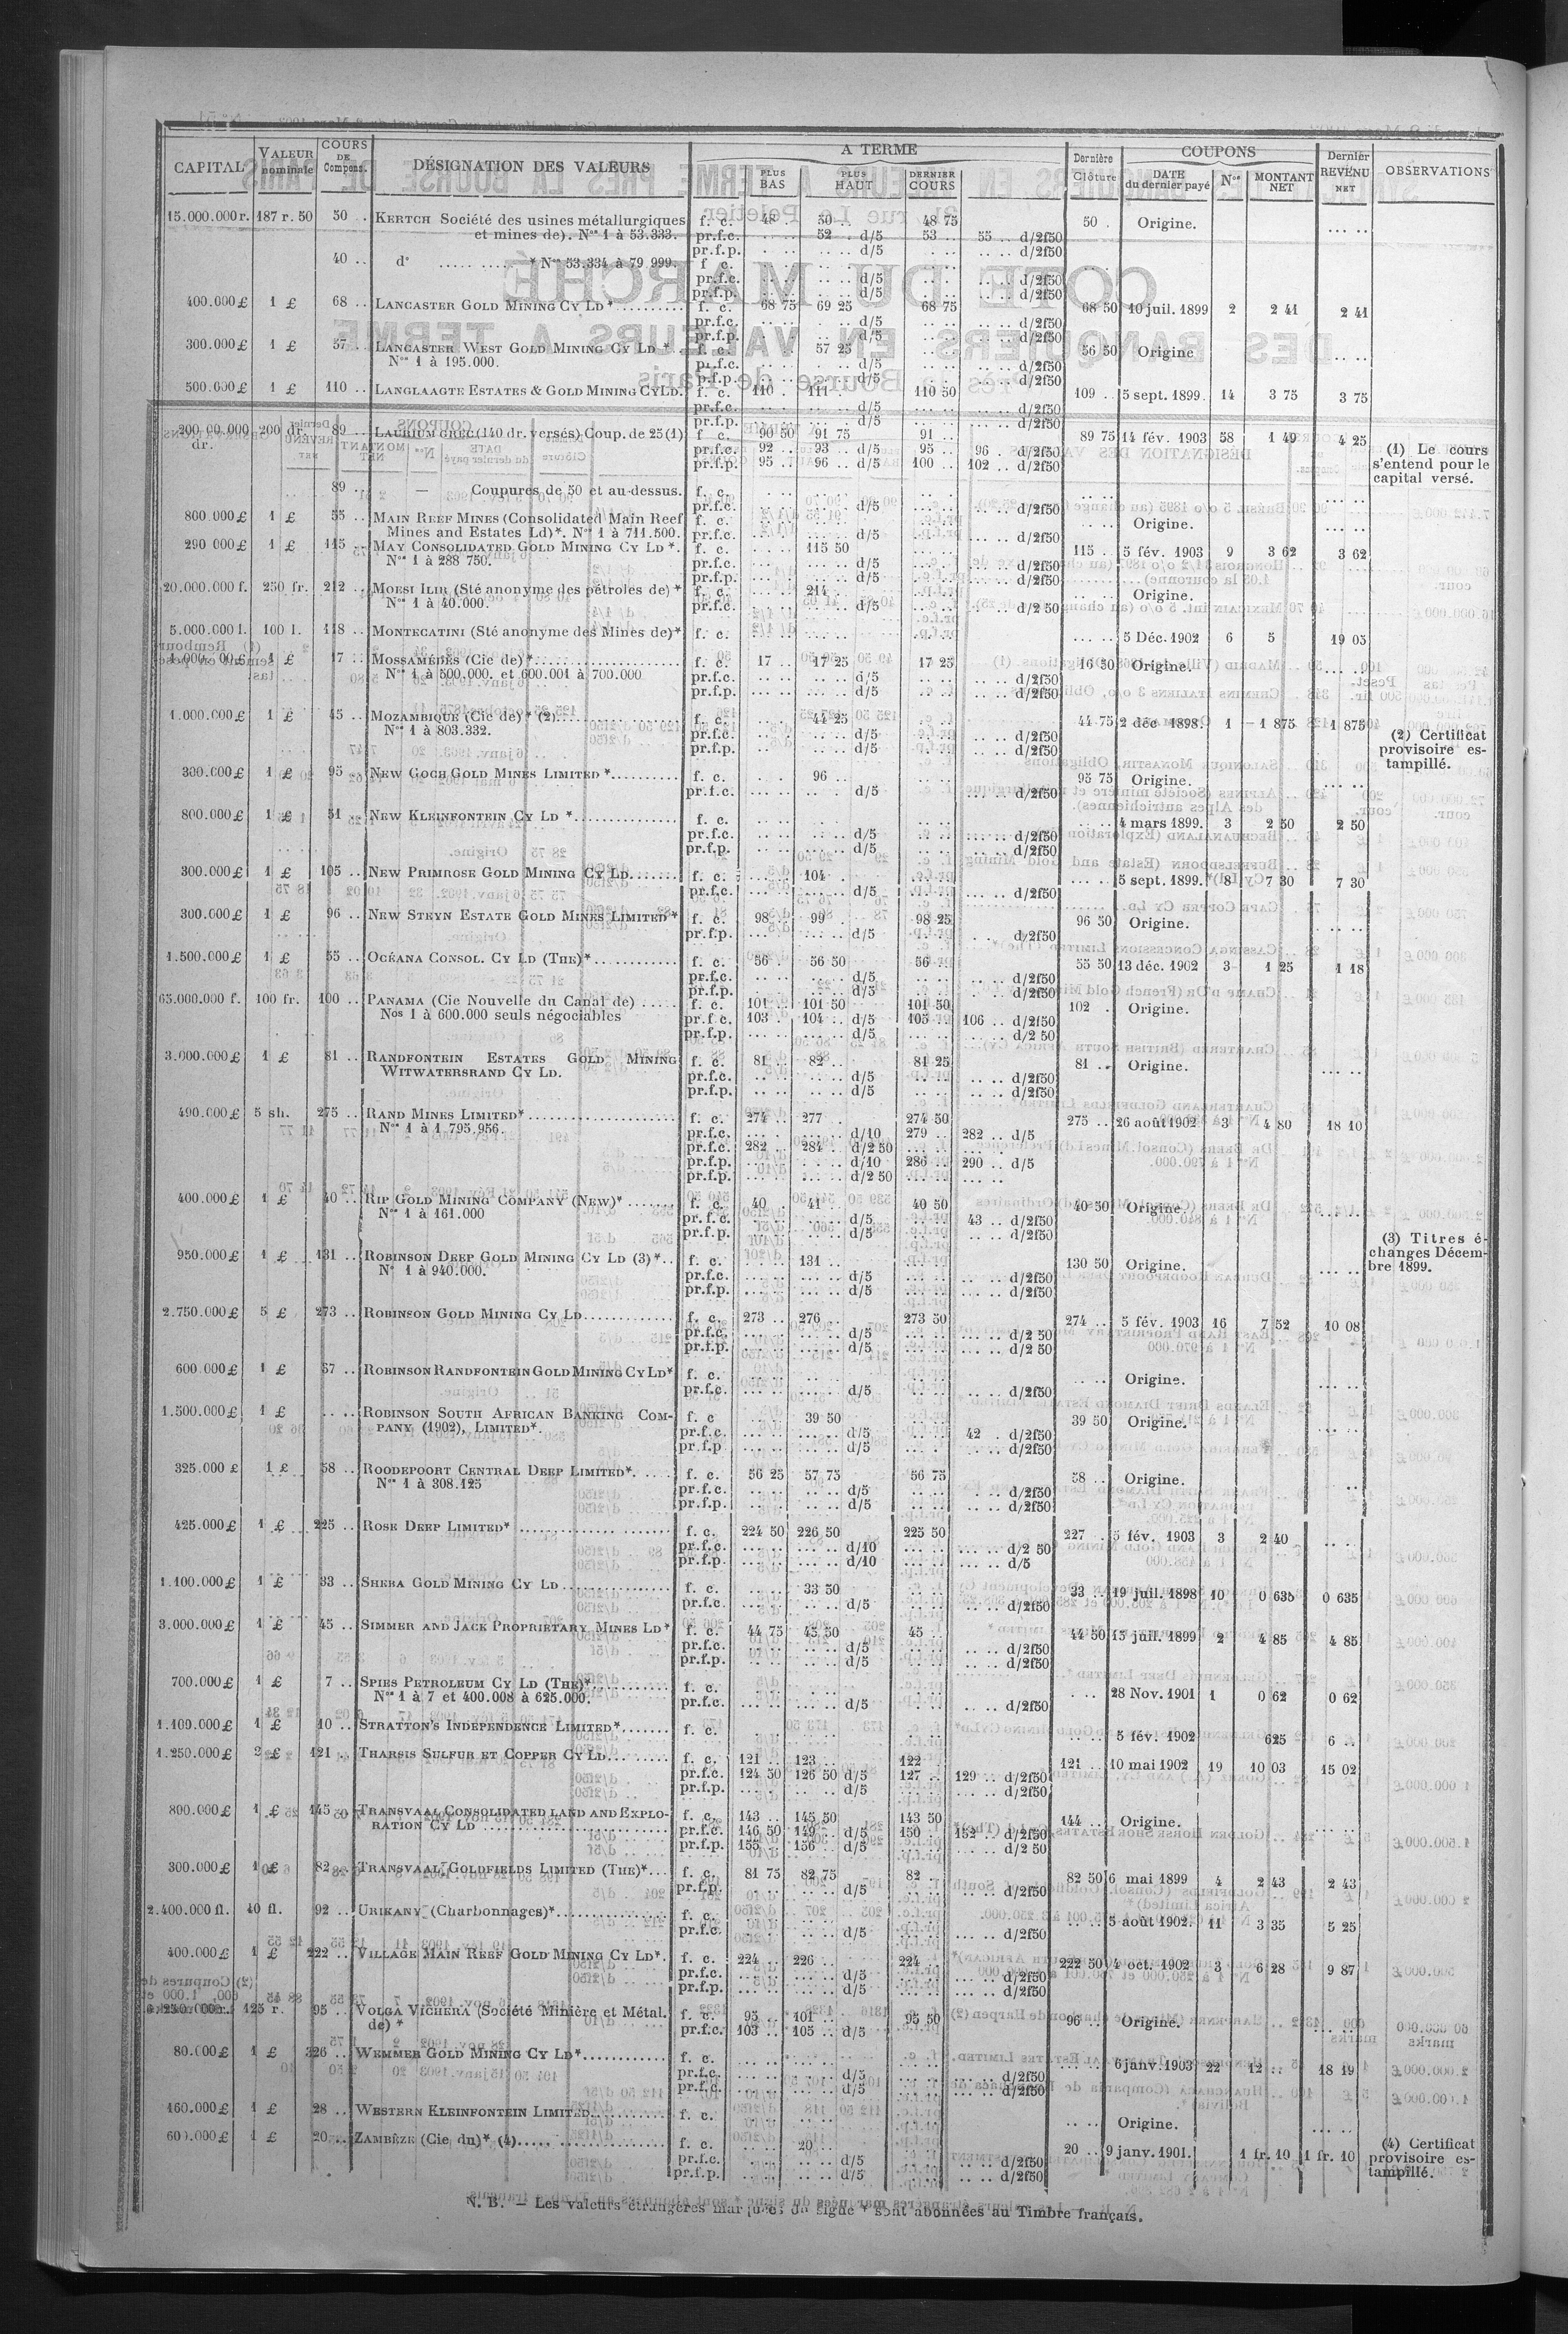 CAPITAL VALEUR nominale COURS DE Compens. DÉSIGNATION DES VALEURS A TERME PLUS BAS PLUS HAUT DERNIER COURS Dernière Clôture COUPONS DATE du dernier payé Nos MONTANT NET Dernier REVENU NET OBSERVATIONS
15.000.000 r. 187 r. 50 50 .. KERTCH Société des usines métallurgiques f. c. 48 .. 50 .. 48 75 50 .. Origine.
et mines de). Nos 1 à 53.333. pr.f.c. 52 .. d/5 53 .. 55 .. d/2f50
pr.f.p. d/5 d/2f50
40 .. d° * Nos 53.334 à 79.999. f. c.
pr.f.c. d/5 d/2f50
pr.f.p. d/5 d/2f50
400.000 £ 1 £ 68 .. LANCASTER GOLD MINING CY LD * f. c. 68 75 69 25 68 75 68 50 10 juil. 1899 2 2 41 2 41
pr.f.c. d/5 d/2f50
pr.f.p. d/5 d/2f50
300.000 £ 1 £ 57 .. LANCASTER WEST GOLD MINING CY LD * f. c. 57 25 56 50 Origine
Nos 1 à 195.000. pr.f.c. d/5 d/2f50
pr.f.p. d/5 d/2f50
500.000 £ 1 £ 110 .. LANGLAAGTE ESTATES & GOLD MINING CY LD. f. c. 110 .. 111 .. 110 50 109 .. 5 sept. 1899. 14 3 75 3 75
pr.f.c. d/5 d/2f50
pr.f.p. d/5 d/2f50
200 dr. 89 .. LAURIUM GREC (140 dr. versés) Coup. de 25 (1) f. c. 90 50 91 75 91 .. 89 75 14 fév. 1903 58 1 49 4 25
dr. pr.f.c. 92 .. 93 .. d/5 95 .. 96 .. d/2f50 (1) Le cours
pr.f.p. 95 .. 96 .. d/5 100 .. 102 .. d/2f50 s'entend pour le
capital versé.
89 .. — Coupures de 50 et au-dessus. f. c.
pr.f.c. d/5 d/2f50
800.000 £ 1 £ 55 .. MAIN REEF MINES (Consolidated Main Reef f. c. Origine.
Mines and Estates Ld)*. Nos 1 à 711.500. pr.f.c. d/5 d/2f50
290 000 £ 1 £ 115 .. MAY CONSOLIDATED GOLD MINING CY LD *. f. c. 115 50 115 .. 5 fév. 1903 9 3 62 3 62
Nos 1 à 288 750. pr.f.c. d/5 d/2f50
pr.f.p. d/5 d/2f50
20.000.000 f. 250 fr. 212 .. MOESI ILIR (Sté anonyme des pétroles de) * f. c. 214 .. Origine.
Nos 1 à 40.000. pr.f.c. d/5 d/2 50
5.000.000 l. 100 l. 118 .. MONTECATINI (Sté anonyme des Mines de)* f. c. 5 Déc. 1902 6 5 19 05
1 £ 17 .. MOSSAMÉDÈS (Cie de) * f. c. 17 .. 17 25 17 25 16 50 Origine.
Nos 1 à 500.000. et 600.001 à 700.000 pr.f.c. d/5 d/2f50
pr.f.p. d/5 d/2f50
1.000.000 £ 1 £ 45 .. MOZAMBIQUE (Cie de) * (2) f. c. 44 25 44 75 2 déc 1898. 1 1 875 1 875
Nos 1 à 803.332. pr.f.c. d/5 d/2f50 (2) Certificat
pr.f.p. d/5 d/2f50 provisoire es-
tampillé.
300.000 £ 1 £ 95 .. NEW GOCH GOLD MINES LIMITED * f. c. 96 .. 95 75 Origine.
pr.f.c. d/5 d/2f50
800.000 £ 1 £ 51 .. NEW KLEINFONTEIN CY LD * f. c. 4 mars 1899. 3 2 50 2 50
pr.f.c. d/5 d/2f50
pr.f.p. d/5 d/2f50
300.000 £ 1 £ 105 .. NEW PRIMROSE GOLD MINING CY LD f. c. 104 .. 5 sept. 1899. 8 7 30 7 30
pr.f.c. d/5 d/2f50
300.000 £ 1 £ 96 .. NEW STEYN ESTATE GOLD MINES LIMITED * f. c. 98 .. 99 .. 98 25 96 50 Origine.
pr.f.p. d/5 d/2f50
1.500.000 £ 1 £ 55 .. OCÉANA CONSOL. CY LD (THE) * f. c. 56 .. 56 50 56 .. 55 50 13 déc. 1902 3 1 25 1 18
pr.f.c. d/5 d/2f50
pr.f.p. d/5 d/2f50
65.000.000 f. 100 fr. 100 .. PANAMA (Cie Nouvelle du Canal de) f. c. 101 .. 101 50 101 50 102 .. Origine.
Nos 1 à 600.000 seuls négociables pr.f.c. 103 .. 104 .. d/5 105 .. 106 .. d/2f50
pr.f.p. d/5 d/2 50
3.000.000 £ 1 £ 81 .. RANDFONTEIN ESTATES GOLD MINING f. c. 81 .. 82 .. 81 25 81 .. Origine.
WITWATERSRAND CY LD. pr.f.c. d/5 d/2f50
pr.f.p. d/5 d/2f50
490.000 £ 5 sh. 275 .. RAND MINES LIMITED* f. c. 274 .. 277 .. 274 50 275 .. 26 août 1902 3 4 80 18 10
Nos 1 à 1.795.956. pr.f.c. d/10 279 .. 282 .. d/5
pr.f.c. 282 .. 284 .. d/2 50
pr.f.p. d/10 286 .. 290 .. d/5
pr.f.p. d/2 50
400.000 £ 1 £ 40 .. RIP GOLD MINING COMPANY (NEW)* f. c. 40 .. 41 .. 40 50 40 50 Origine.
Nos 1 à 161.000 pr.f.c. d/5 43 .. d/2f50
pr.f.p. d/5 d/2f50
(3) Titres é-
950.000 £ 1 £ 131 .. ROBINSON DEEP GOLD MINING CY LD (3) *.. f. c. 131 .. 130 50 Origine. changes Décem-
Nos 1 à 940.000. pr.f.c. d/5 d/2f50 bre 1899.
pr.f.p. d/5 d/2f50
2.750.000 £ 5 £ 273 .. ROBINSON GOLD MINING CY LD f. c. 273 .. 276 .. 273 50 274 .. 5 fév. 1903 16 7 52 10 08
pr.f.c. d/5 d/2 50
pr.f.p. d/5 d/2 50
600.000 £ 1 £ 57 .. ROBINSON RANDFONTEIN GOLD MINING CY LD* f. c. Origine.
pr.f.c. d/5 d/2f50
1.500.000 £ 1 £ ROBINSON SOUTH AFRICAN BANKING COM- f. c 39 50 39 50 Origine.
PANY (1902), LIMITED*. pr.f.c. d/5 42 . d/2f50
pr.f.p d/5 d/2f50
325.000 £ 1 £ 58 .. ROODEPOORT CENTRAL DEEP LIMITED*. f. c. 56 25 57 75 56 75 58 .. Origine.
Nos 1 à 308.125 pr.f.c. d/5 d/2f50
pr.f.p. d/5 d/2f50
425.000 £ 1 £ 225 .. ROSE DEEP LIMITED* f. c. 224 50 226 50 225 50 227 .. 5 fév. 1903 3 2 40
pr.f.c. d/10 d/2 50
pr.f.p. d/10 d/5
1.100.000 £ 1 £ 33 .. SHEBA GOLD MINING CY LD f. c. 33 50 33 .. 19 juil. 1898 10 0 635 0 635
pr.f.c. d/5 d/2f50
3.000.000 £ 1 £ 45 .. SIMMER AND JACK PROPRIETARY MINES LD* f. c. 44 75 45 50 45 .. 44 50 15 juil. 1899 2 4 85 4 85
pr.f.c. d/5 d/2f50
pr.f.p. d/5 d/2f50
700.000 £ 1 £ 7 .. SPIES PETROLEUM CY LD (THE)* f. c. 28 Nov. 1901 1 0 62 0 62
Nos 1 à 7 et 400.008 à 625.000. pr.f.c. d/5 d/2f50
1.100.000 £ 1 £ 10 .. STRATTON'S INDEPENDENCE LIMITED* f. c. 5 fév. 1902 625 6 ..
1.250.000 £ 2 £ 121 .. THARSIS SULFUR ET COPPER CY LD f. c. 121 .. 123 .. 122 .. 121 .. 10 mai 1902 19 10 03 15 02
pr.f.c. 124 50 126 50 d/5 127 .. 129 .. d/2f50
pr.f.p. d/5 d/2f50
800.000 £ 1 £ 145 TRANSVAAL CONSOLIDATED LAND AND EXPLO- f. c. 143 .. 145 50 143 50 144 .. Origine.
RATION CY LD pr.f.c. 146 50 149 .. d/5 150 .. 152 .. d/2f50
pr.f.p. 155 .. 156 .. d/5 d/2 50
300.000 £ 1 £ 82 TRANSVAAL GOLDFIELDS LIMITED (THE)* f. c. 81 75 82 75 82 .. 82 50 6 mai 1899 4 2 43 2 43
pr.f.p. d/5 d/2f50
2.400.000 fl. 40 fl. 92 .. URIKANY (Charbonnages)* f. c. 5 août 1902. 11 3 35 5 25
pr.f.c. d/5 d/2f50
400.000 £ 1 £ 222 .. VILLAGE MAIN REEF GOLD MINING CY LD*. f. c. 224 .. 226 .. 224 .. 222 50 4 oct. 1902 3 6 28 9 87
pr.f.c. d/5 d/2f50
pr.f.p. d/5 d/2f50
125 r. 95 .. VOLGA VICHERA (Société Minière et Métal. f. c. 95 .. 101 .. 95 50 96 .. Origine.
de) * pr.f.c. 103 .. 105 .. d/5
80.000 £ 1 £ 326 .. WEMMER GOLD MINING CY LD* f. c. 6 janv. 1903 22 12 .. 18 19
pr.f.c. d/5 d/2f50
pr.f.c. d/5 d/2f50
160.000 £ 1 £ 28 .. WESTERN KLEINFONTEIN LIMITED f. c. Origine.
600.000 £ 1 £ 20 .. ZAMBÈZE (Cie du)* (4) f. c. 20 .. 20 .. 9 janv. 1901. 1 fr. 10 1 fr. 10 (4) Certificat
pr.f.c. d/5 d/2f50 provisoire es-
pr.f.p. d/5 d/2f50 tampillé.
N. B. — Les valeurs étrangères marquées du signe * sont abonnées au Timbre français.